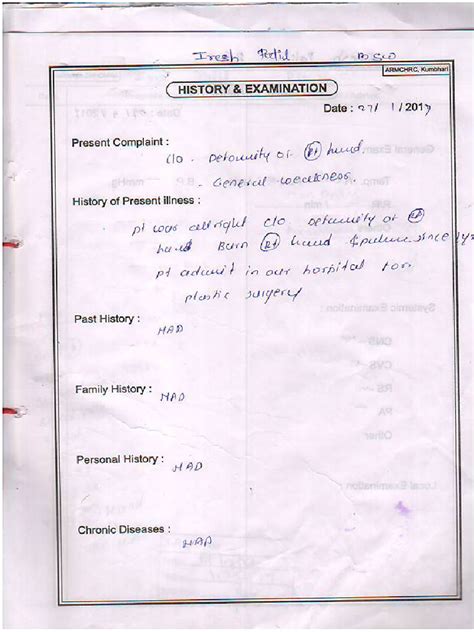 Iresh Patil BSW
ARMCHRC, Kumbhari
HISTORY & EXAMINATION
Date : 27/ 1 /2017
Present Complaint :
c/o - Deformity of Rt hand.
- General weakness.
History of Present illness :
pt was allright c/o Deformity of Rt
hand Burn Rt hand since
pt admit in our hospital for
plastic surgery
Past History :
NAD
Family History :
NAD
Personal History :
NAD
Chronic Diseases :
NAD